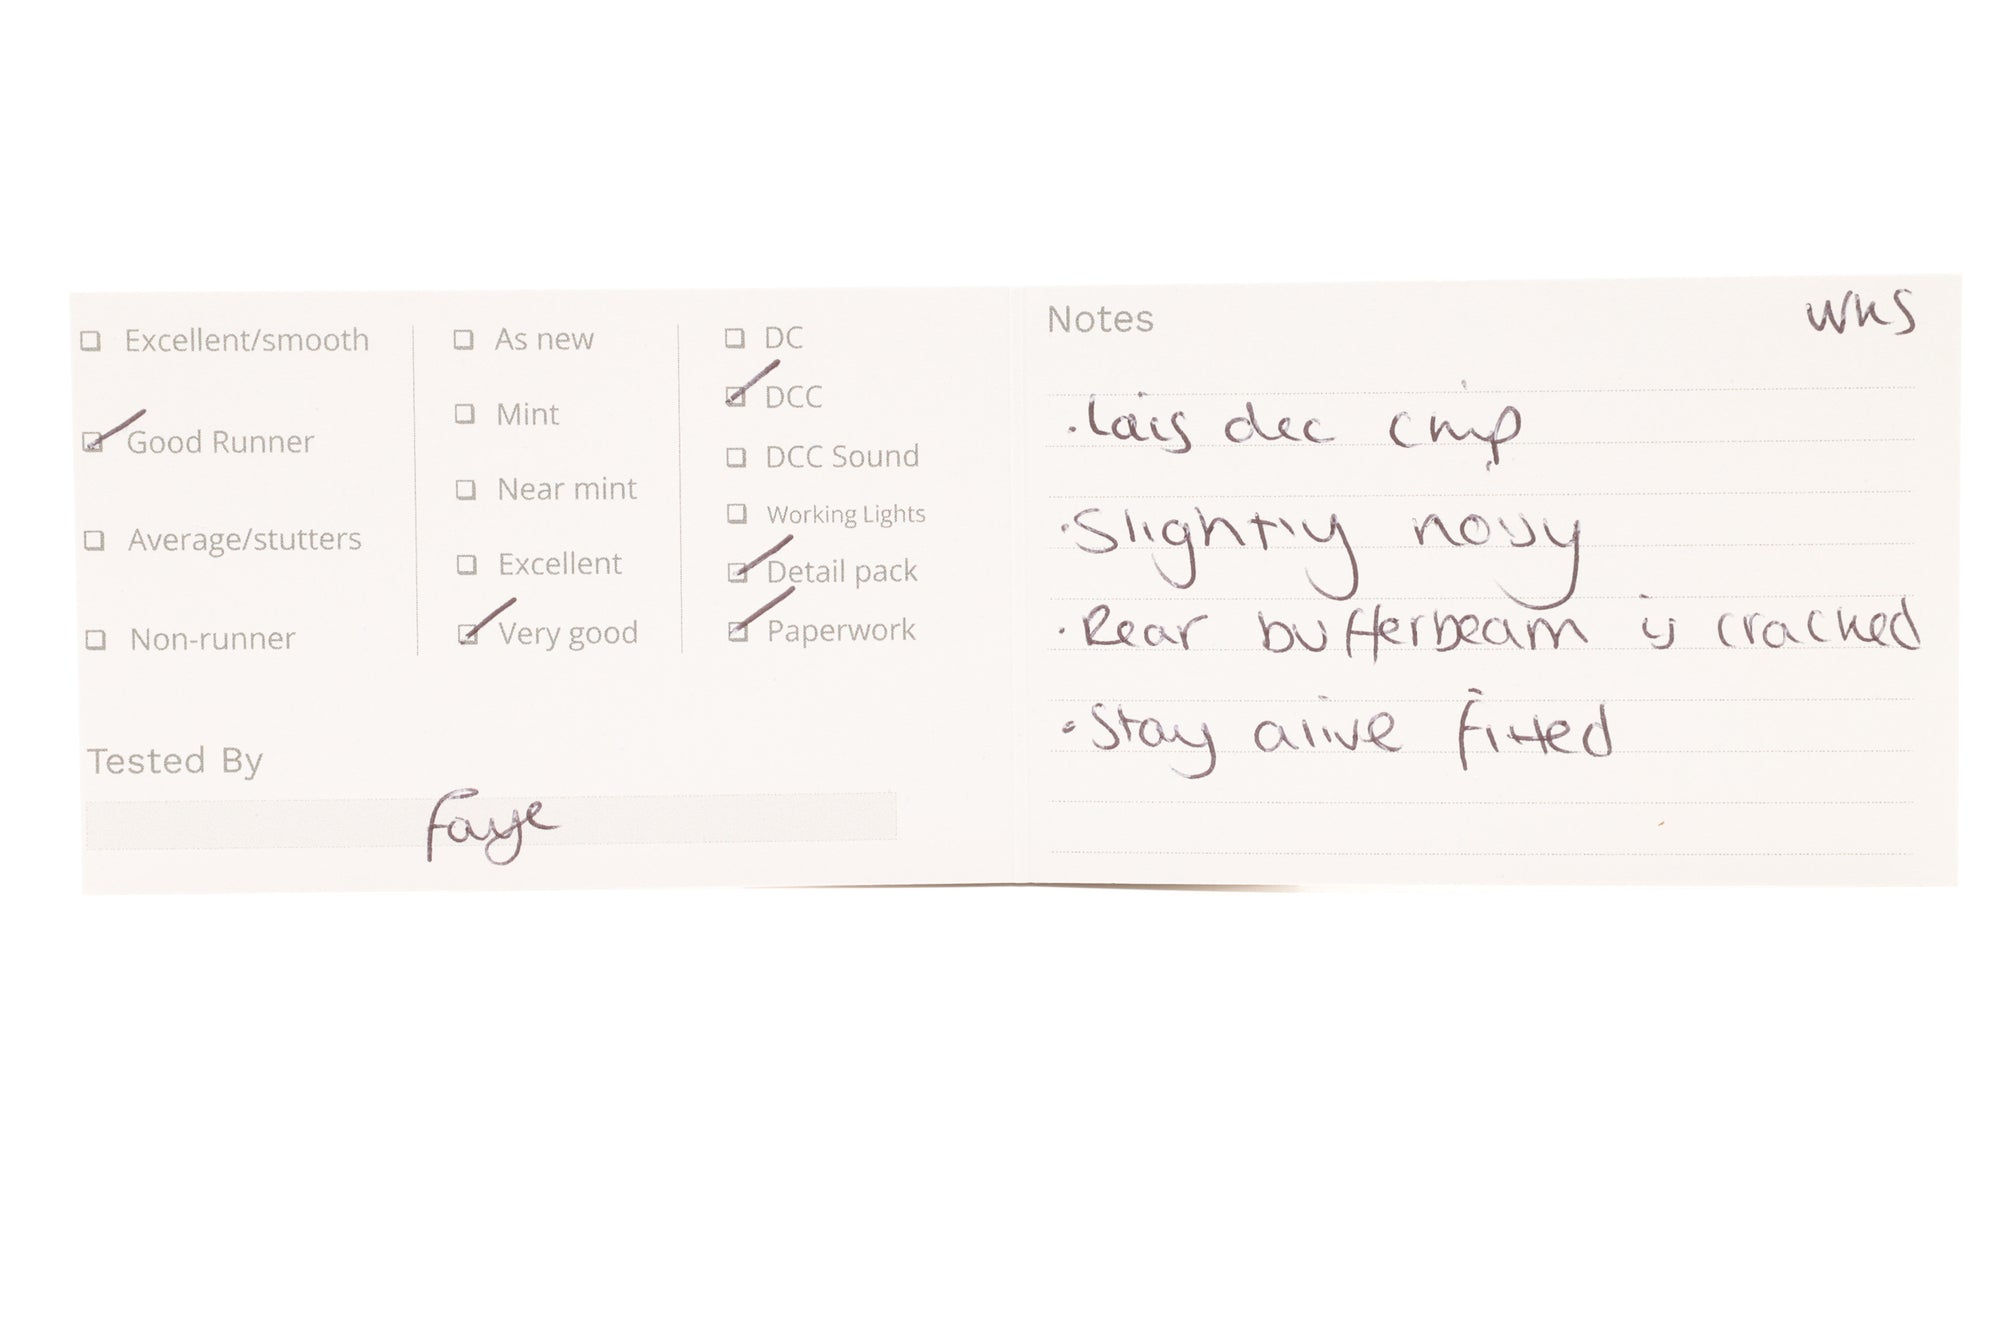 Excellent/smooth
Good Runner
Average/stutters
Non-runner
As new
Mint
Near mint
Excellent
Very good
DC
DCC
DCC Sound
Working Lights
Detail pack
Paperwork
Tested By
Faye
Notes
WKS
· Lais dcc chip
· Slightly noisy
· Rear bufferbeam is cracked
· Stay alive fitted